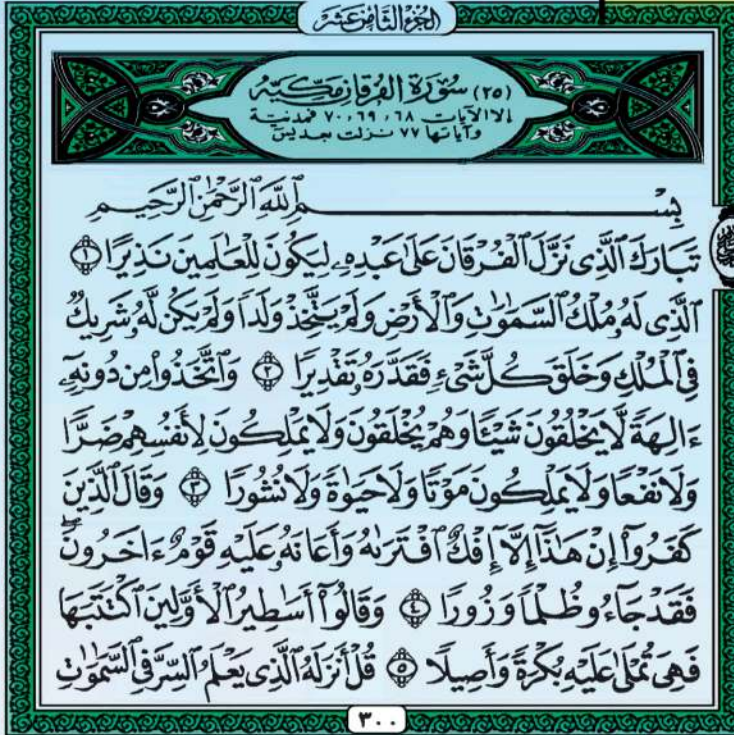 الجزء الثامن عشر
(٢٥) سُورَةُ الفُرْقَانِ مَكِّيَّة
إلا الآيات ٦٨، ٦٩، ٧٠ فمدنية
وآياتها ٧٧ نزلت بعد يس
بِسْمِ ٱللَّهِ ٱلرَّحْمَٰنِ ٱلرَّحِيمِ
تَبَارَكَ ٱلَّذِى نَزَّلَ ٱلْفُرْقَانَ عَلَىٰ عَبْدِهِۦ لِيَكُونَ لِلْعَالَمِينَ نَذِيرًا ١
ٱلَّذِى لَهُۥ مُلْكُ ٱلسَّمَٰوَٰتِ وَٱلْأَرْضِ وَلَمْ يَتَّخِذْ وَلَدًا وَلَمْ يَكُن لَّهُۥ شَرِيكٌ
فِى ٱلْمُلْكِ وَخَلَقَ كُلَّ شَىْءٍ فَقَدَّرَهُۥ تَقْدِيرًا ٢ وَٱتَّخَذُوا۟ مِن دُونِهِۦٓ
ءَالِهَةً لَّا يَخْلُقُونَ شَيْـًٔا وَهُمْ يُخْلَقُونَ وَلَا يَمْلِكُونَ لِأَنفُسِهِمْ ضَرًّا
وَلَا نَفْعًا وَلَا يَمْلِكُونَ مَوْتًا وَلَا حَيَوٰةً وَلَا نُشُورًا ٣ وَقَالَ ٱلَّذِينَ
كَفَرُوٓا۟ إِنْ هَٰذَآ إِلَّآ إِفْكٌ ٱفْتَرَىٰهُ وَأَعَانَهُۥ عَلَيْهِ قَوْمٌ ءَاخَرُونَ ۖ
فَقَدْ جَآءُو ظُلْمًا وَزُورًا ٤ وَقَالُوٓا۟ أَسَٰطِيرُ ٱلْأَوَّلِينَ ٱكْتَتَبَهَا
فَهِىَ تُمْلَىٰ عَلَيْهِ بُكْرَةً وَأَصِيلًا ٥ قُلْ أَنزَلَهُ ٱلَّذِى يَعْلَمُ ٱلسِّرَّ فِى ٱلسَّمَٰوَٰتِ
٣٠٠